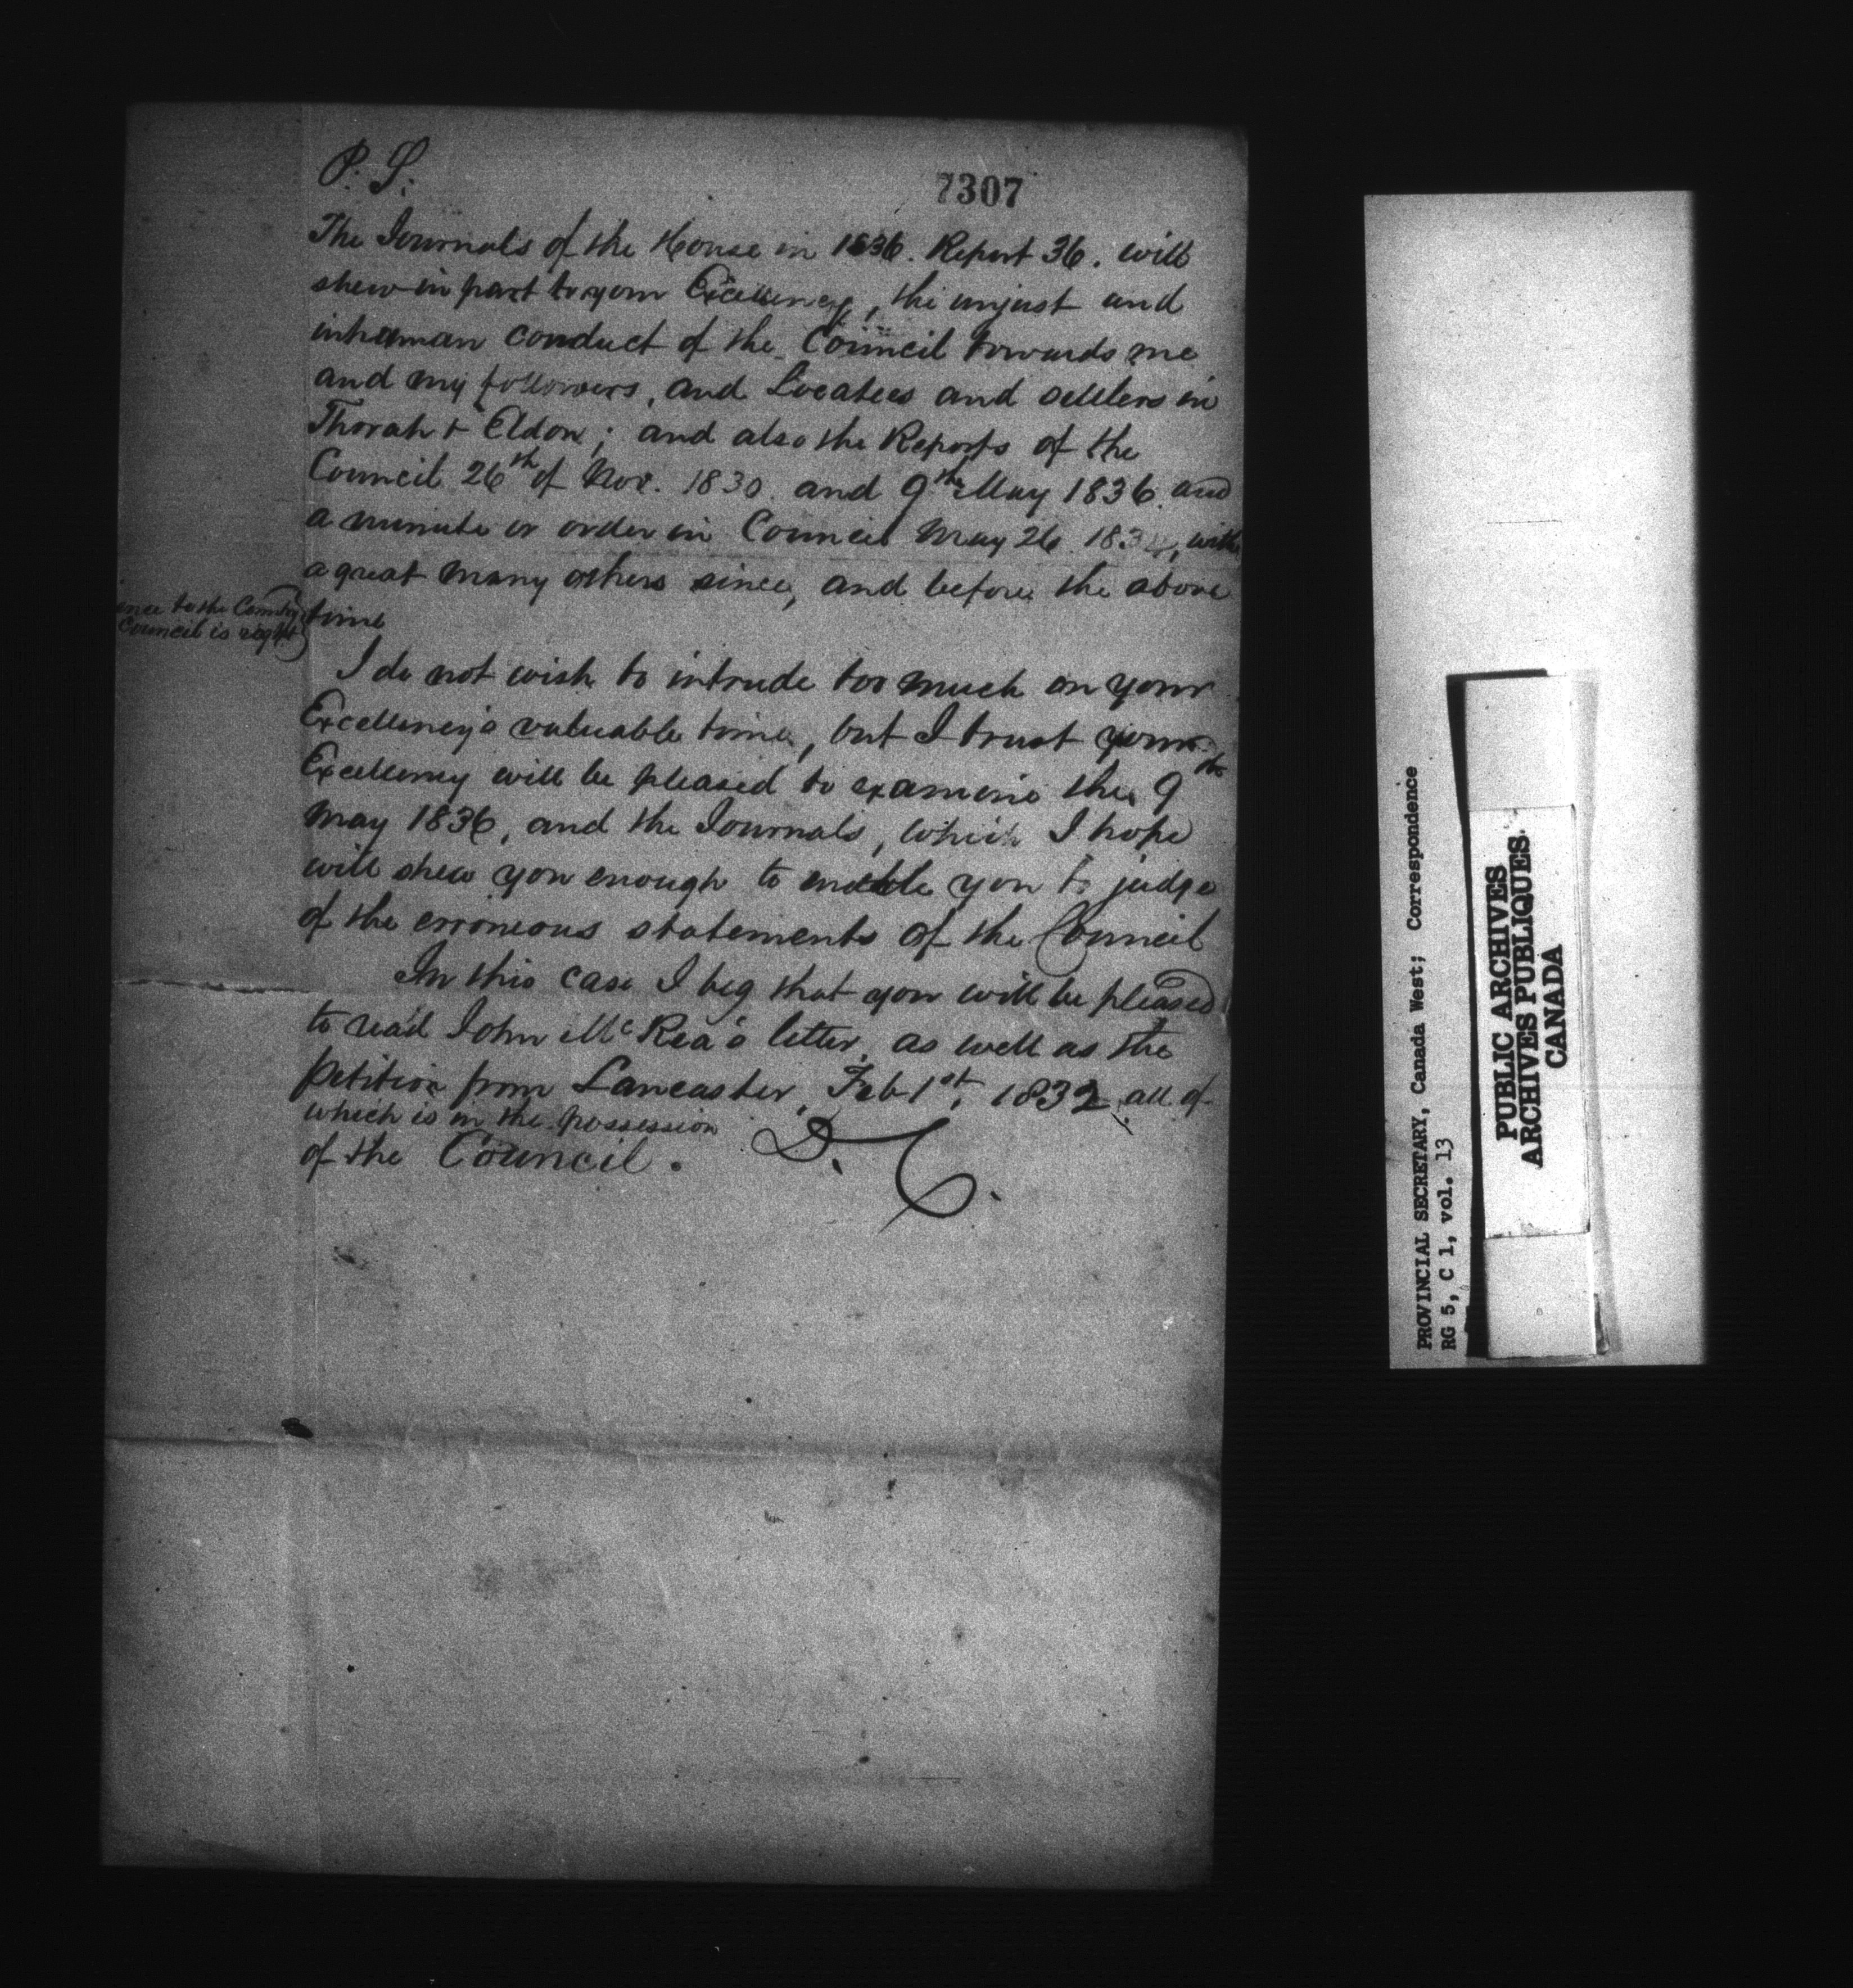 P. S.
7307
The Journals of the House in 1836. Report 36. will
shew in part to your Excellency, the unjust and
inhuman conduct of the Council towards me
and my followers, and Locatees and settlers in
Thorah & Eldon; and also the Reports of the
Council 26th of Nov. 1830. and 9th May 1836. and
a minute or order in Council May 26. 183 , with
a great many others since, and before the above
time
to the Country
Council is right
I do not wish to intrude too much on your
Excellency's valuable time, but I trust your
Excellency will be pleased to examine the 9th
May 1836, and the Journals, which I hope
will shew you enough to enable you to judge
of the erroneous statements of the Council
In this case I beg that you will be pleased
to read John McRea's letter, as well as the
petition from Lancaster, Feb 1st, 1832, all of
which is in the possession
of the Council.
D. C.
PROVINCIAL SECRETARY, Canada West; Correspondence
RG 5, C 1, vol. 13
PUBLIC ARCHIVES
ARCHIVES PUBLIQUES
CANADA